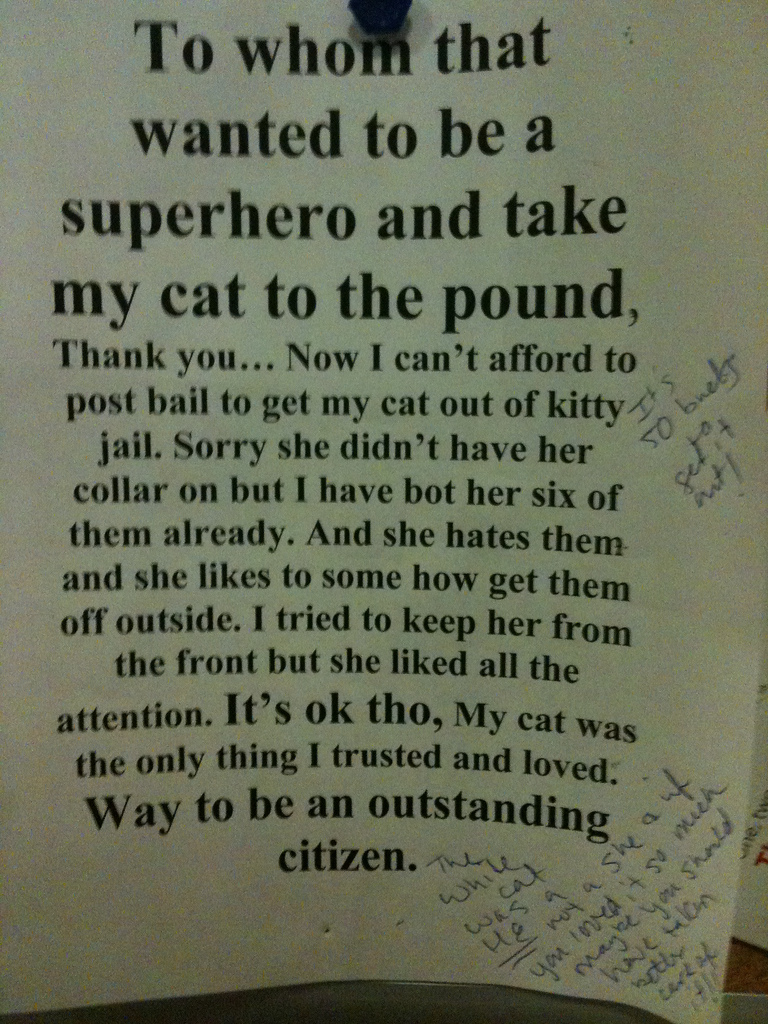 To whom that
wanted to be a
superhero and take
my cat to the pound,
Thank you... Now I can't afford to
post bail to get my cat out of kitty
jail. Sorry she didn't have her
collar on but I have bot her six of
them already. And she hates them
and she likes to some how get them
off outside. I tried to keep her from
the front but she liked all the
attention. It's ok tho, My cat was
the only thing I trusted and loved.
Way to be an outstanding
citizen.
It's
50 bucks
get to
it
out!
The
white
cat
was a
HE not a she &
if
you loved it so much
maybe you should
have taken
better
care of
it!!!